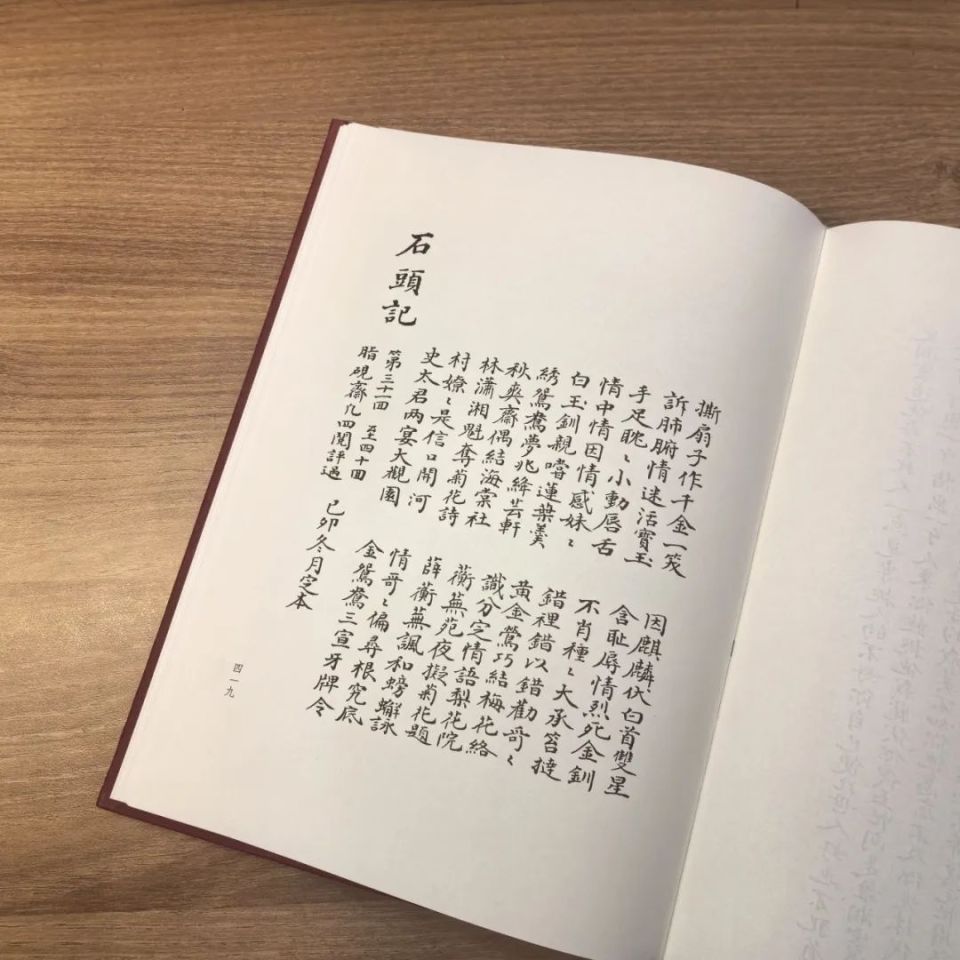 撕扇子作千金一笑 因麒麟伏白首雙星
訴肺腑情迷活寶玉 含耻辱情烈死金釧
手足眈〻小動唇舌 不肖種〻大承笞撻
情中情因情感妹〻 錯裡錯以錯勸哥〻
白玉釧親嚐蓮葉羹 黃金鶯巧結梅花絡
綉鴛鴦夢兆絳芸軒 識分定情語梨花院
秋爽齋偶結海棠社 蘅蕪苑夜擬菊花題
林瀟湘魁奪菊花詩 薛蘅蕪諷和螃蠏詠
村嫽〻是信口開河 情哥〻偏尋根究底
史太君两宴大觀園 金鴛鴦三宣牙牌令
石頭記 第三十一回 至四十回
脂硯齋凡四閱評過 己卯冬月定本
四一九